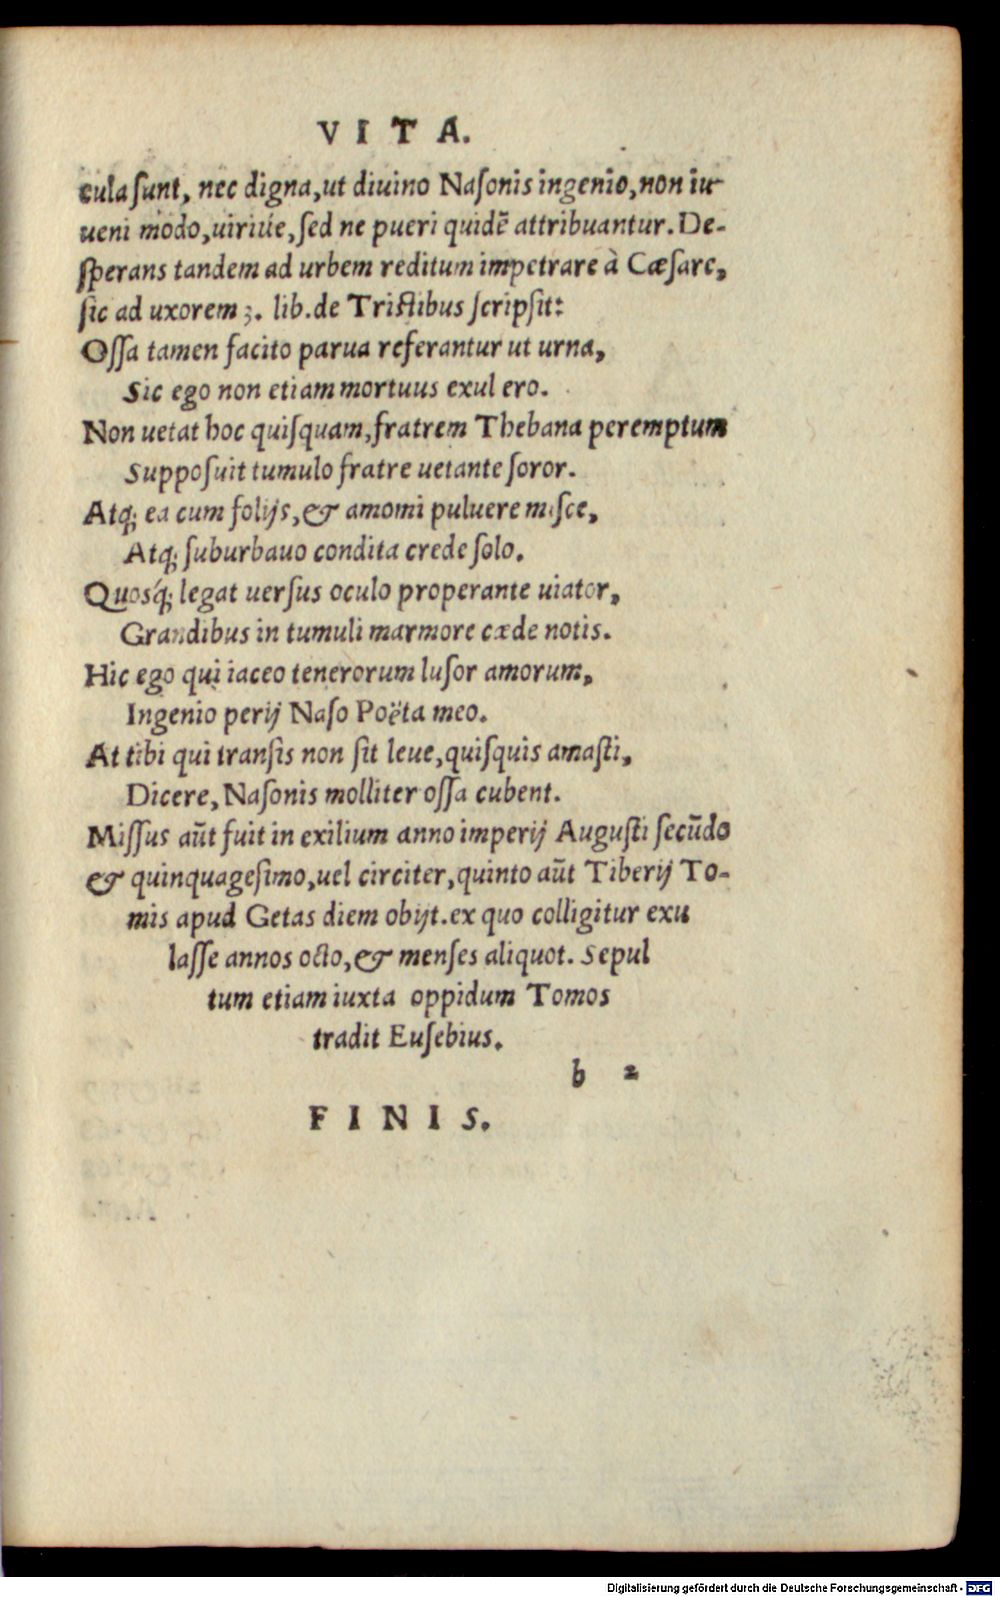 VITA.
cula sunt, nec digna, ut diuino Nasonis ingenio, non iu-
ueni modo, uiriue, sed ne pueri quidē attribuantur. De-
sperans tandem ad urbem reditum impetrare à Cæsare,
sic ad uxorem 3. lib. de Tristibus scripsit:
Ossa tamen facito parua referantur ut urna,
Sic ego non etiam mortuus exul ero.
Non uetat hoc quisquam, fratrem Thebana peremptum
Supposuit tumulo fratre uetante soror.
Atq; ea cum folijs, & amomi puluere misce,
Atq; suburbauo condita crede solo.
Quosq́; legat uersus oculo properante uiator,
Grandibus in tumuli marmore cæde notis.
Hic ego qui iaceo tenerorum lusor amorum,
Ingenio perij Naso Poëta meo.
At tibi qui transis non sit leue, quisquis amasti,
Dicere, Nasonis molliter ossa cubent.
Missus aūt fuit in exilium anno imperij Augusti secūdo
& quinquagesimo, uel circiter, quinto aūt Tiberij To-
mis apud Getas diem obijt. ex quo colligitur exu
lasse annos octo, & menses aliquot. Sepul
tum etiam iuxta oppidum Tomos
tradit Eusebius.
b 2
FINIS.
Digitalisierung gefördert durch die Deutsche Forschungsgemeinschaft - DFG